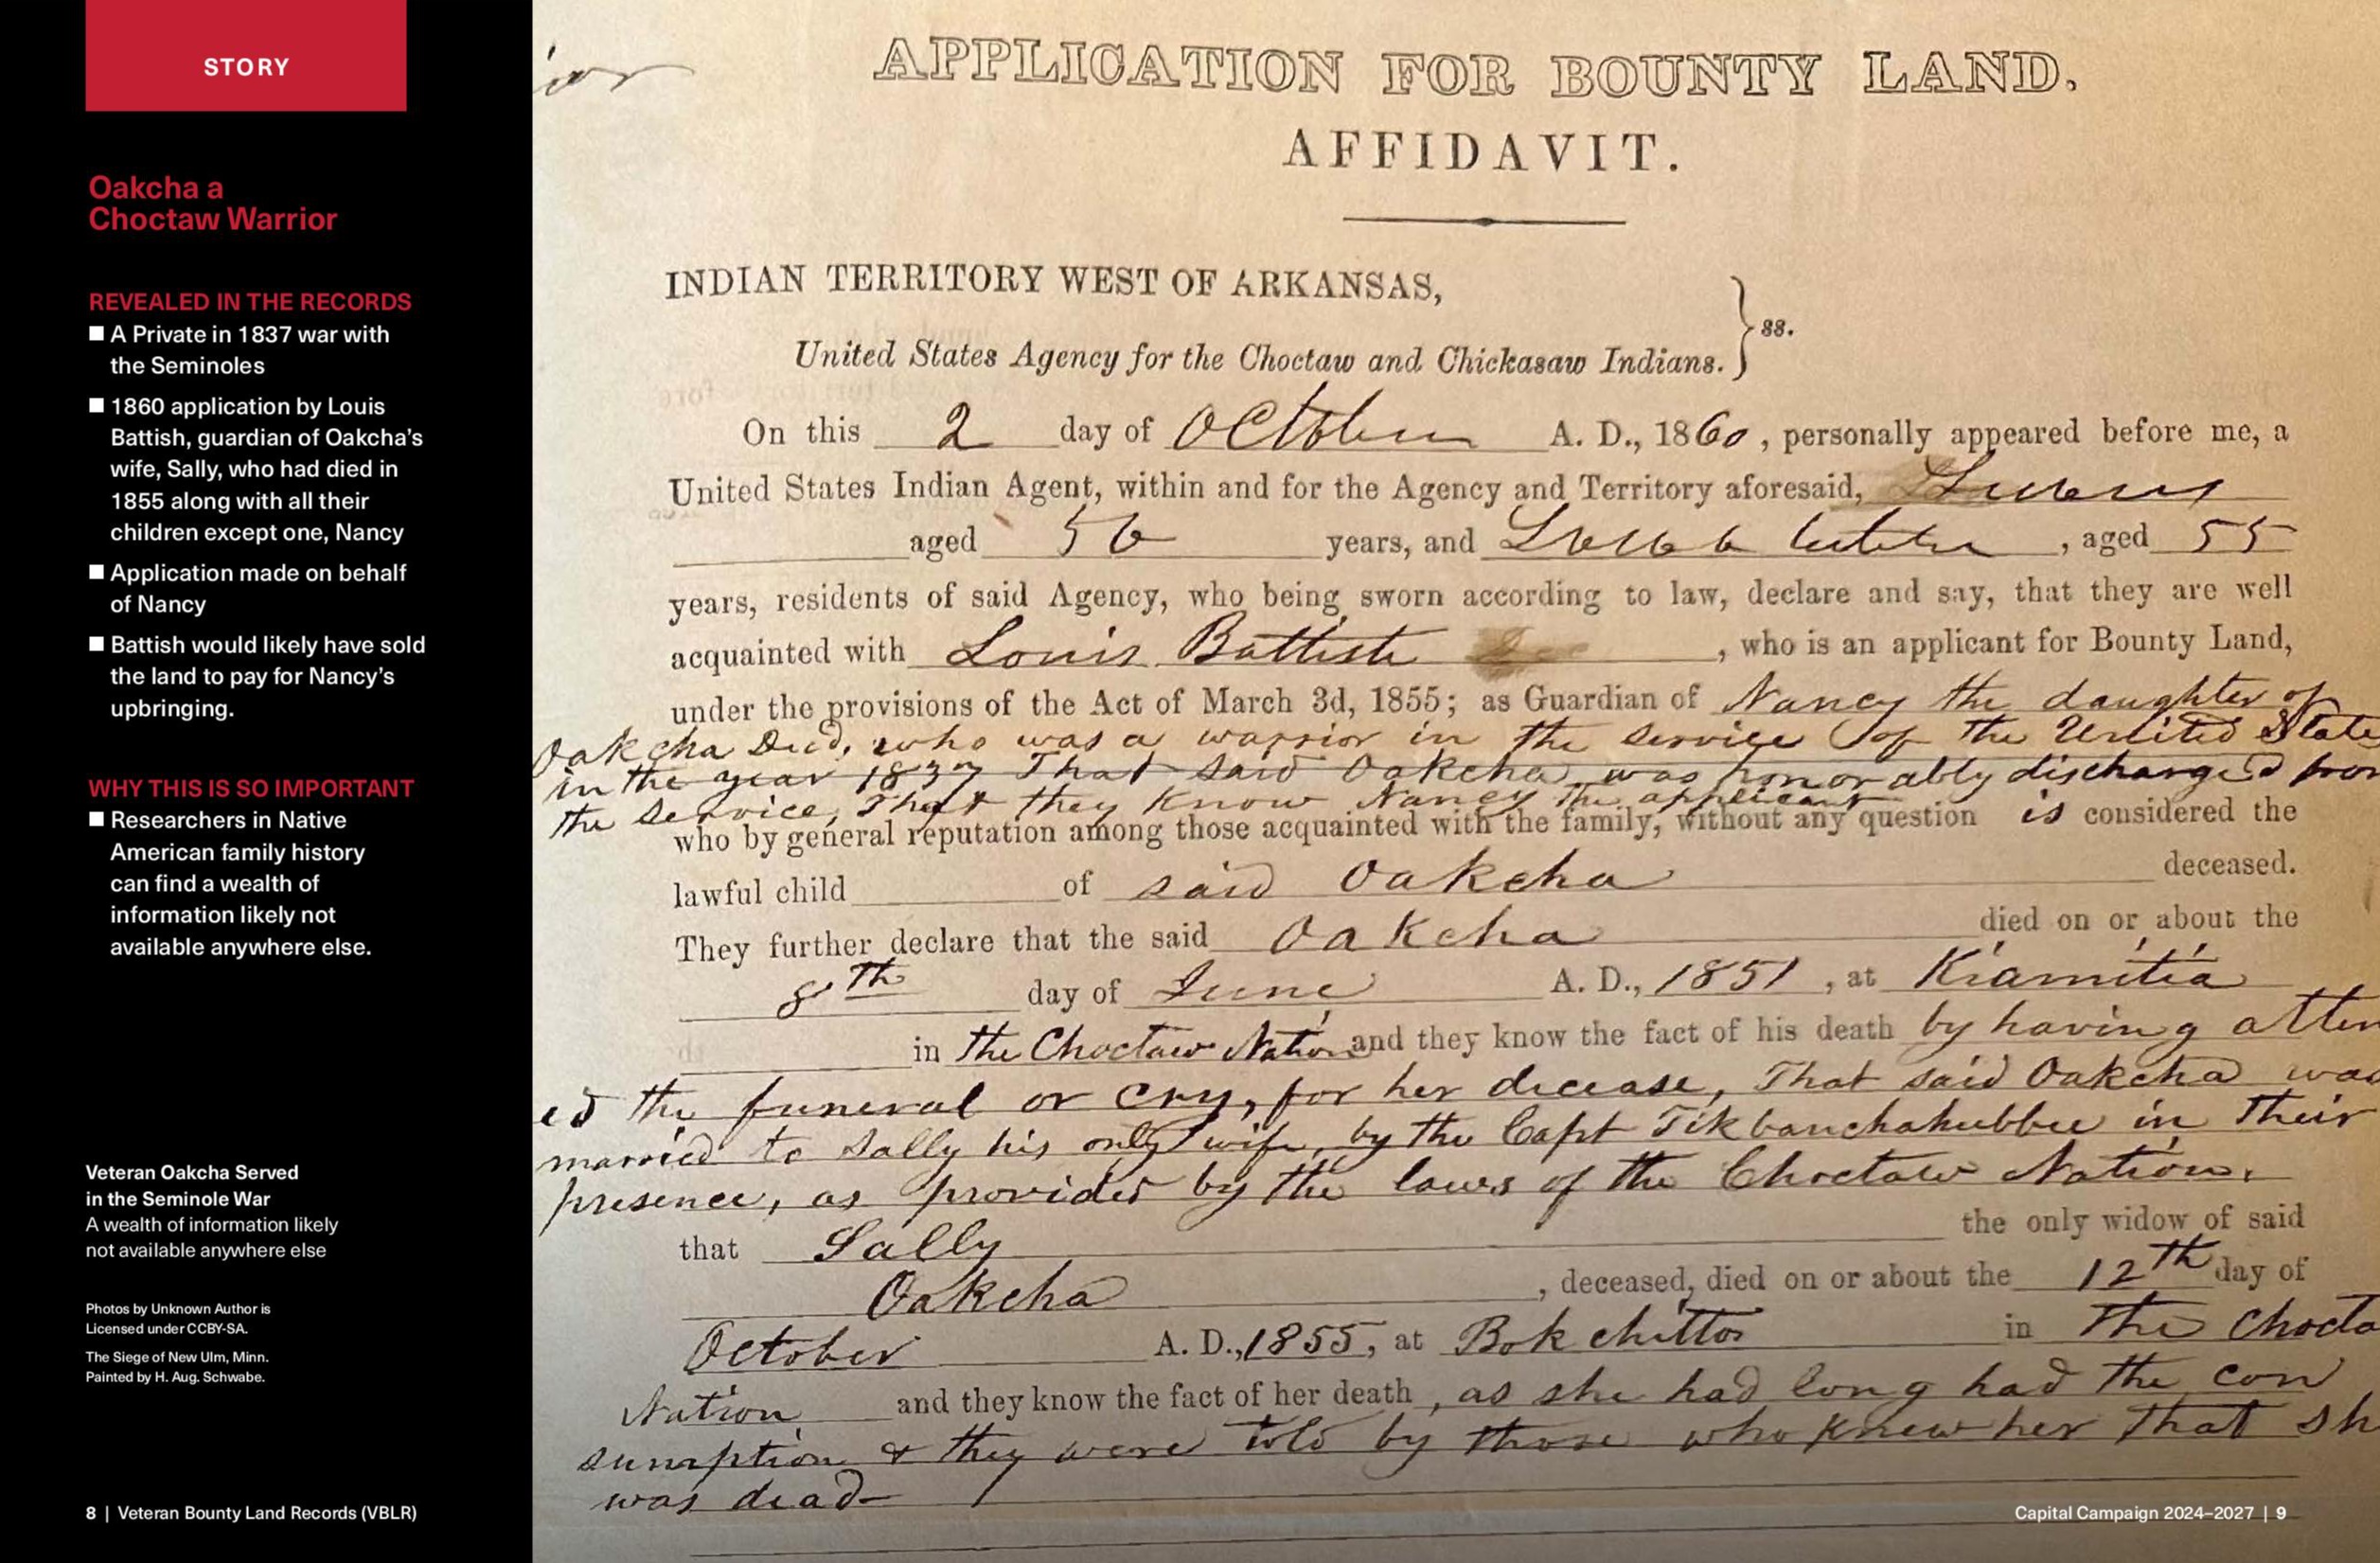 STORY
Oakcha a
Choctaw Warrior
REVEALED IN THE RECORDS
■ A Private in 1837 war with
the Seminoles
■ 1860 application by Louis
Battish, guardian of Oakcha’s
wife, Sally, who had died in
1855 along with all their
children except one, Nancy
■ Application made on behalf
of Nancy
■ Battish would likely have sold
the land to pay for Nancy’s
upbringing.
WHY THIS IS SO IMPORTANT
■ Researchers in Native
American family history
can find a wealth of
information likely not
available anywhere else.
Veteran Oakcha Served
in the Seminole War
A wealth of information likely
not available anywhere else
Photos by Unknown Author is
Licensed under CCBY-SA.
The Siege of New Ulm, Minn.
Painted by H. Aug. Schwabe.
8 | Veteran Bounty Land Records (VBLR)
APPLICATION FOR BOUNTY LAND.
AFFIDAVIT.
INDIAN TERRITORY WEST OF ARKANSAS,
United States Agency for the Choctaw and Chickasaw Indians. } ss.
On this 2 day of October A. D., 1860, personally appeared before me, a
United States Indian Agent, within and for the Agency and Territory aforesaid,
aged 56 years, and , aged 55
years, residents of said Agency, who being sworn according to law, declare and say, that they are well
acquainted with Louis Battiste , who is an applicant for Bounty Land,
under the provisions of the Act of March 3d, 1855; as Guardian of Nancy the daughter of
Oakcha Decd, who was a warrior in the service of the United State
in the year 1837 That said Oakcha was honorably discharged from
the service, That they know Nancy the applicant
who by general reputation among those acquainted with the family, without any question is considered the
lawful child of said Oakcha deceased.
They further declare that the said Oakcha died on or about the
8th day of June A. D., 1851, at Kiamitia
in the Choctaw Nation and they know the fact of his death by having atten
ed the funeral or cry, for her decease, That said Oakcha was
married to Sally his only wife, by the Capt Tikbanchahubbee in their
presence, as provided by the laws of the Choctaw Nation.
that Sally the only widow of said
Oakcha , deceased, died on or about the 12th day of
October A. D., 1855, at Bok chitto in the Chocta
Nation and they know the fact of her death, as she had long had the con
sumption & they were told by those who knew her that sh
was dead
Capital Campaign 2024–2027 | 9